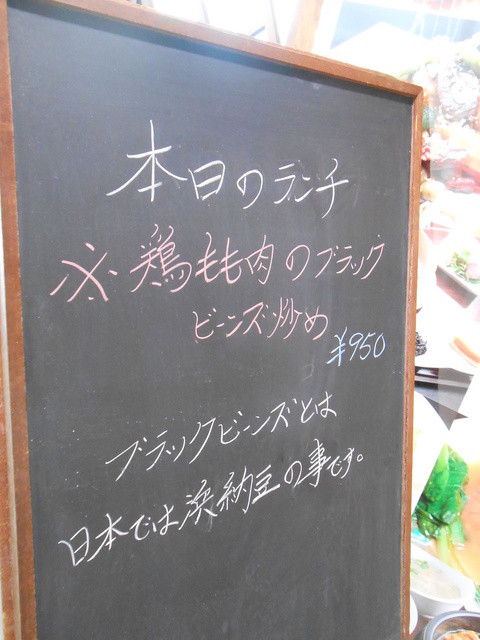 本日のランチ
※鶏もも肉のブラック
ビーンズ炒め
¥950
ブラックビーンズとは
日本では浜納豆の事です。